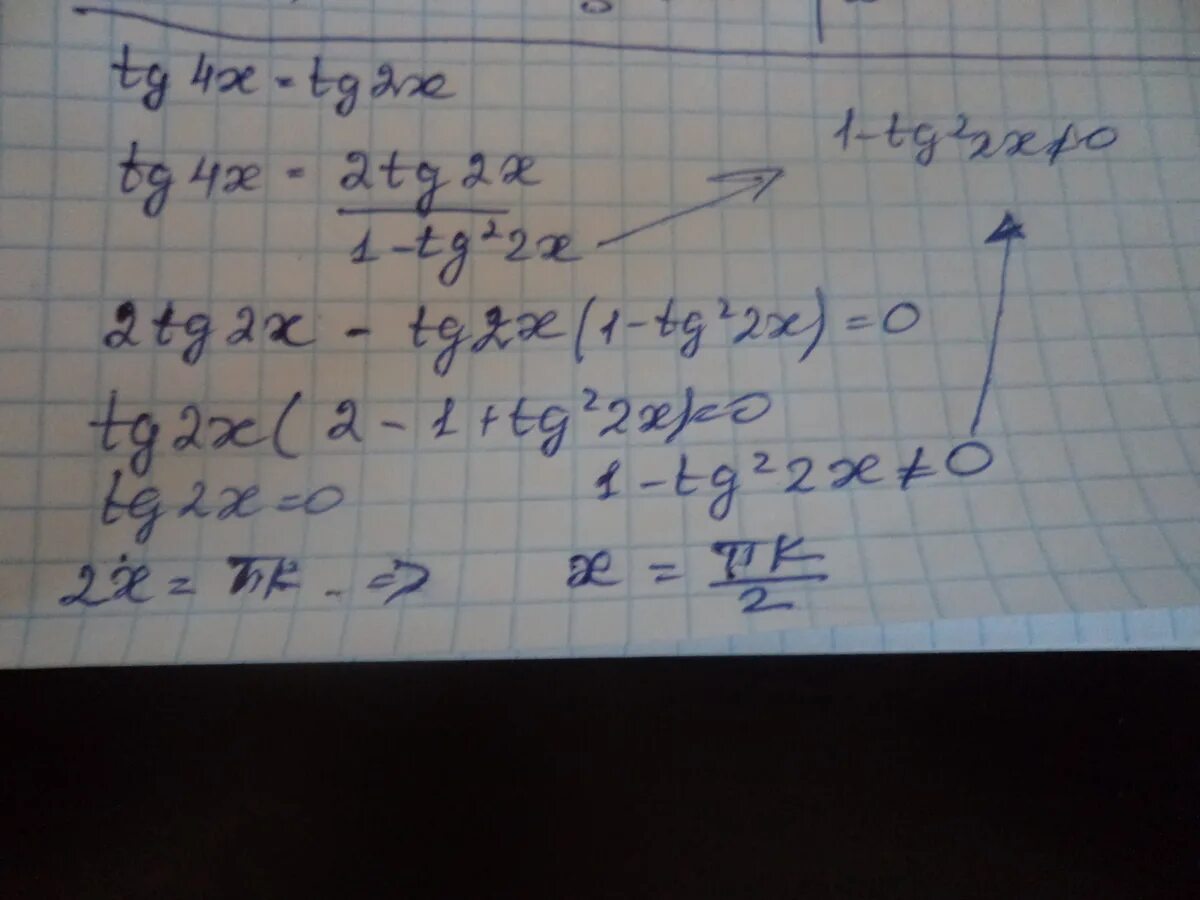 tg 4x = tg 2x
tg 4x = 2tg 2x / 1 - tg² 2x
1 - tg² 2x ≠ 0
2tg 2x - tg 2x (1 - tg² 2x) = 0
tg 2x ( 2 - 1 + tg² 2x) = 0
tg 2x = 0
1 - tg² 2x ≠ 0
2x = πk => x = πk / 2